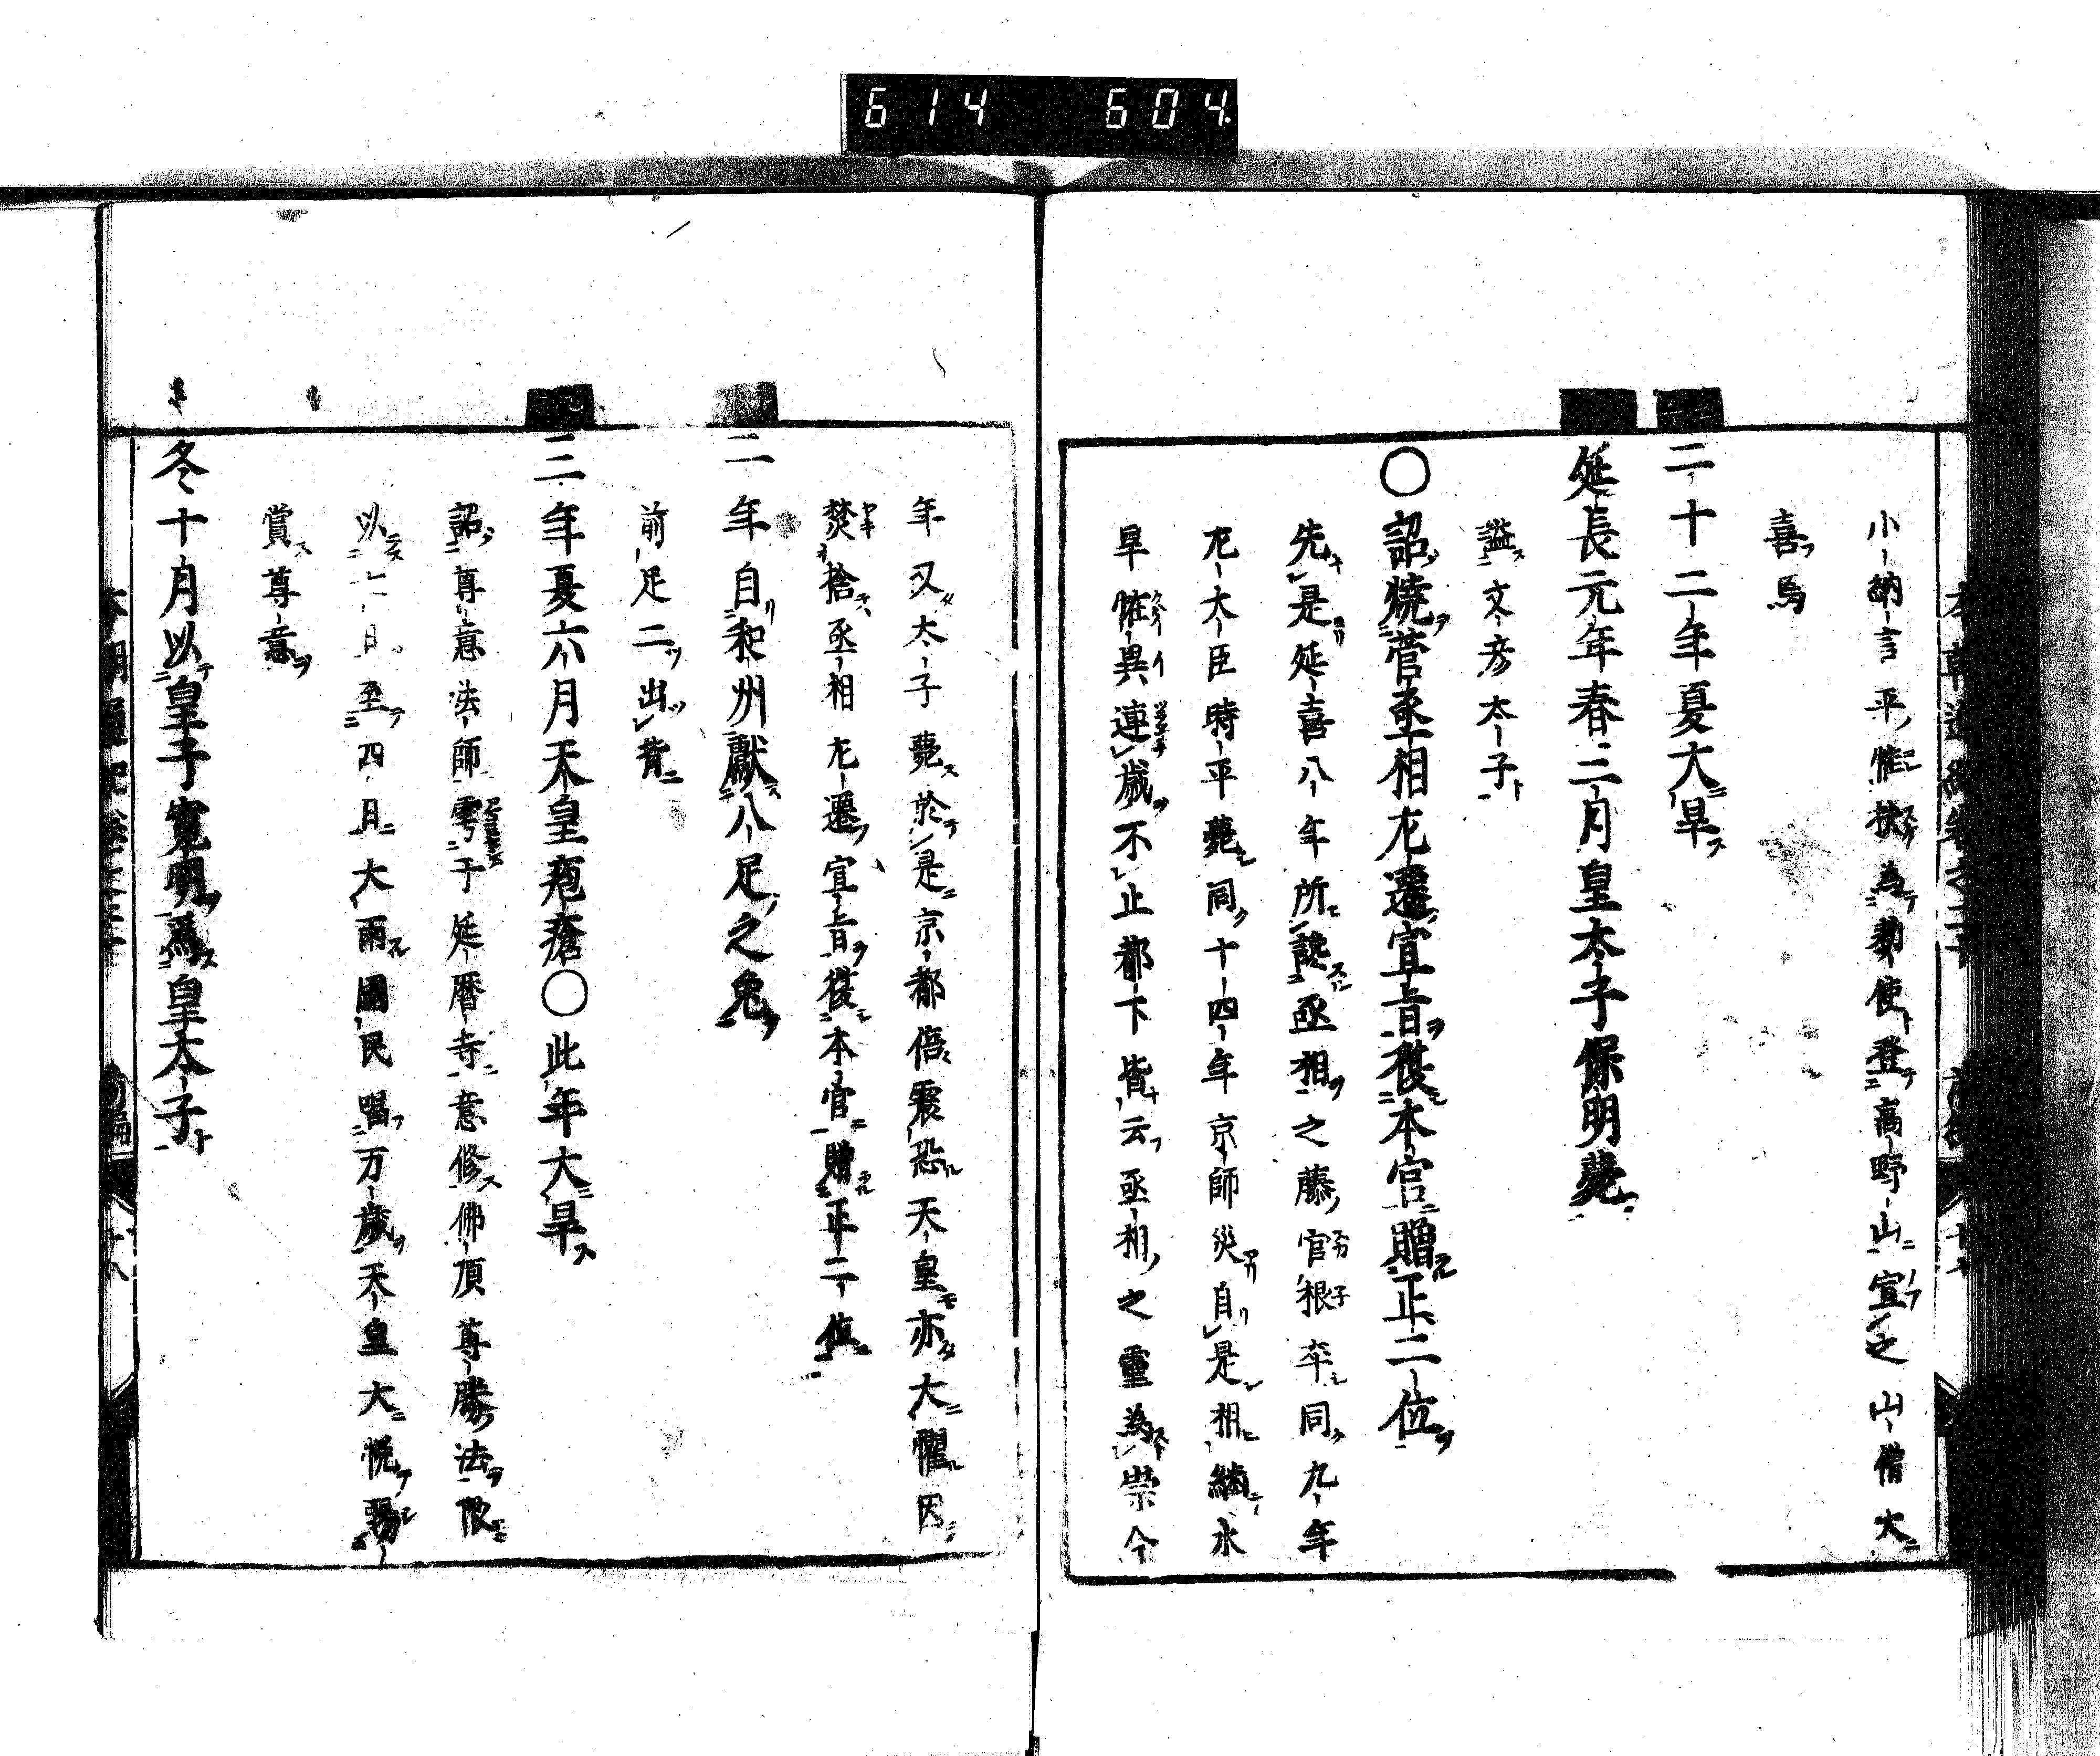 614 604
小納言平惟扶為勅使登高野山宣之山僧大
喜焉
二十二年夏大旱
延長元年春三月皇太子保明薨
謚文彦太子
〇詔燒菅丞相左遷宣旨復本官贈正二位
先是延喜八年所讒丞相之藤官根卒同九年
左大臣時平薨同十四年京師災自是相續水
旱恠異連歲不止都下皆云丞相之靈為祟今
年又太子薨於是京都倍震恐天皇亦大懼因
焚捨丞相左遷宣旨復本官贈正二位
二年自和州獻八足之兔
前足二出背
三年夏六月天皇疱瘡〇此年大旱
詔尊意法師雩于延曆寺意修佛頂尊勝法限
以月至四月大雨國民唱万歲天皇大悦
賞尊意
冬十月以皇子寬明爲皇太子